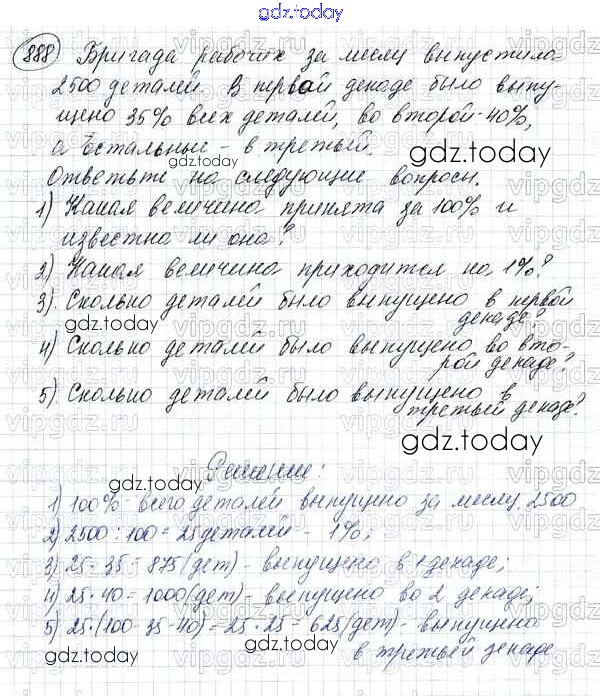 gdz.today
888 Бригада рабочих за месяц выпустила
2500 деталей. В первой декаде было выпу-
щено 35% всех деталей, во второй - 40%,
а остальные - в третьей.
gdz.today
gdz.today
Ответьте на следующие вопросы.
1) Какая величина принята за 100% и
известна ли она?
2) Какая величина приходится на 1%?
3) Сколько деталей было выпущено в первой
декаде?
gdz.today
4) Сколько деталей было выпущено во вто-
рой декаде?
5) Сколько деталей было выпущено в
третьей декаде?
gdz.today
Решение:
1) 100% - всего деталей выпущено за месяц 2500
2) 2500 : 100 = 25 деталей - 1%;
3) 25 · 35 = 875 (дет) - выпущено в 1 декаде;
4) 25 · 40 = 1000 (дет) - выпущено во 2 декаде;
5) 25 · (100 - 35 - 40) = 25 · 25 = 625 (дет) - выпущено
в третьей декаде
gdz.today
gdz.today